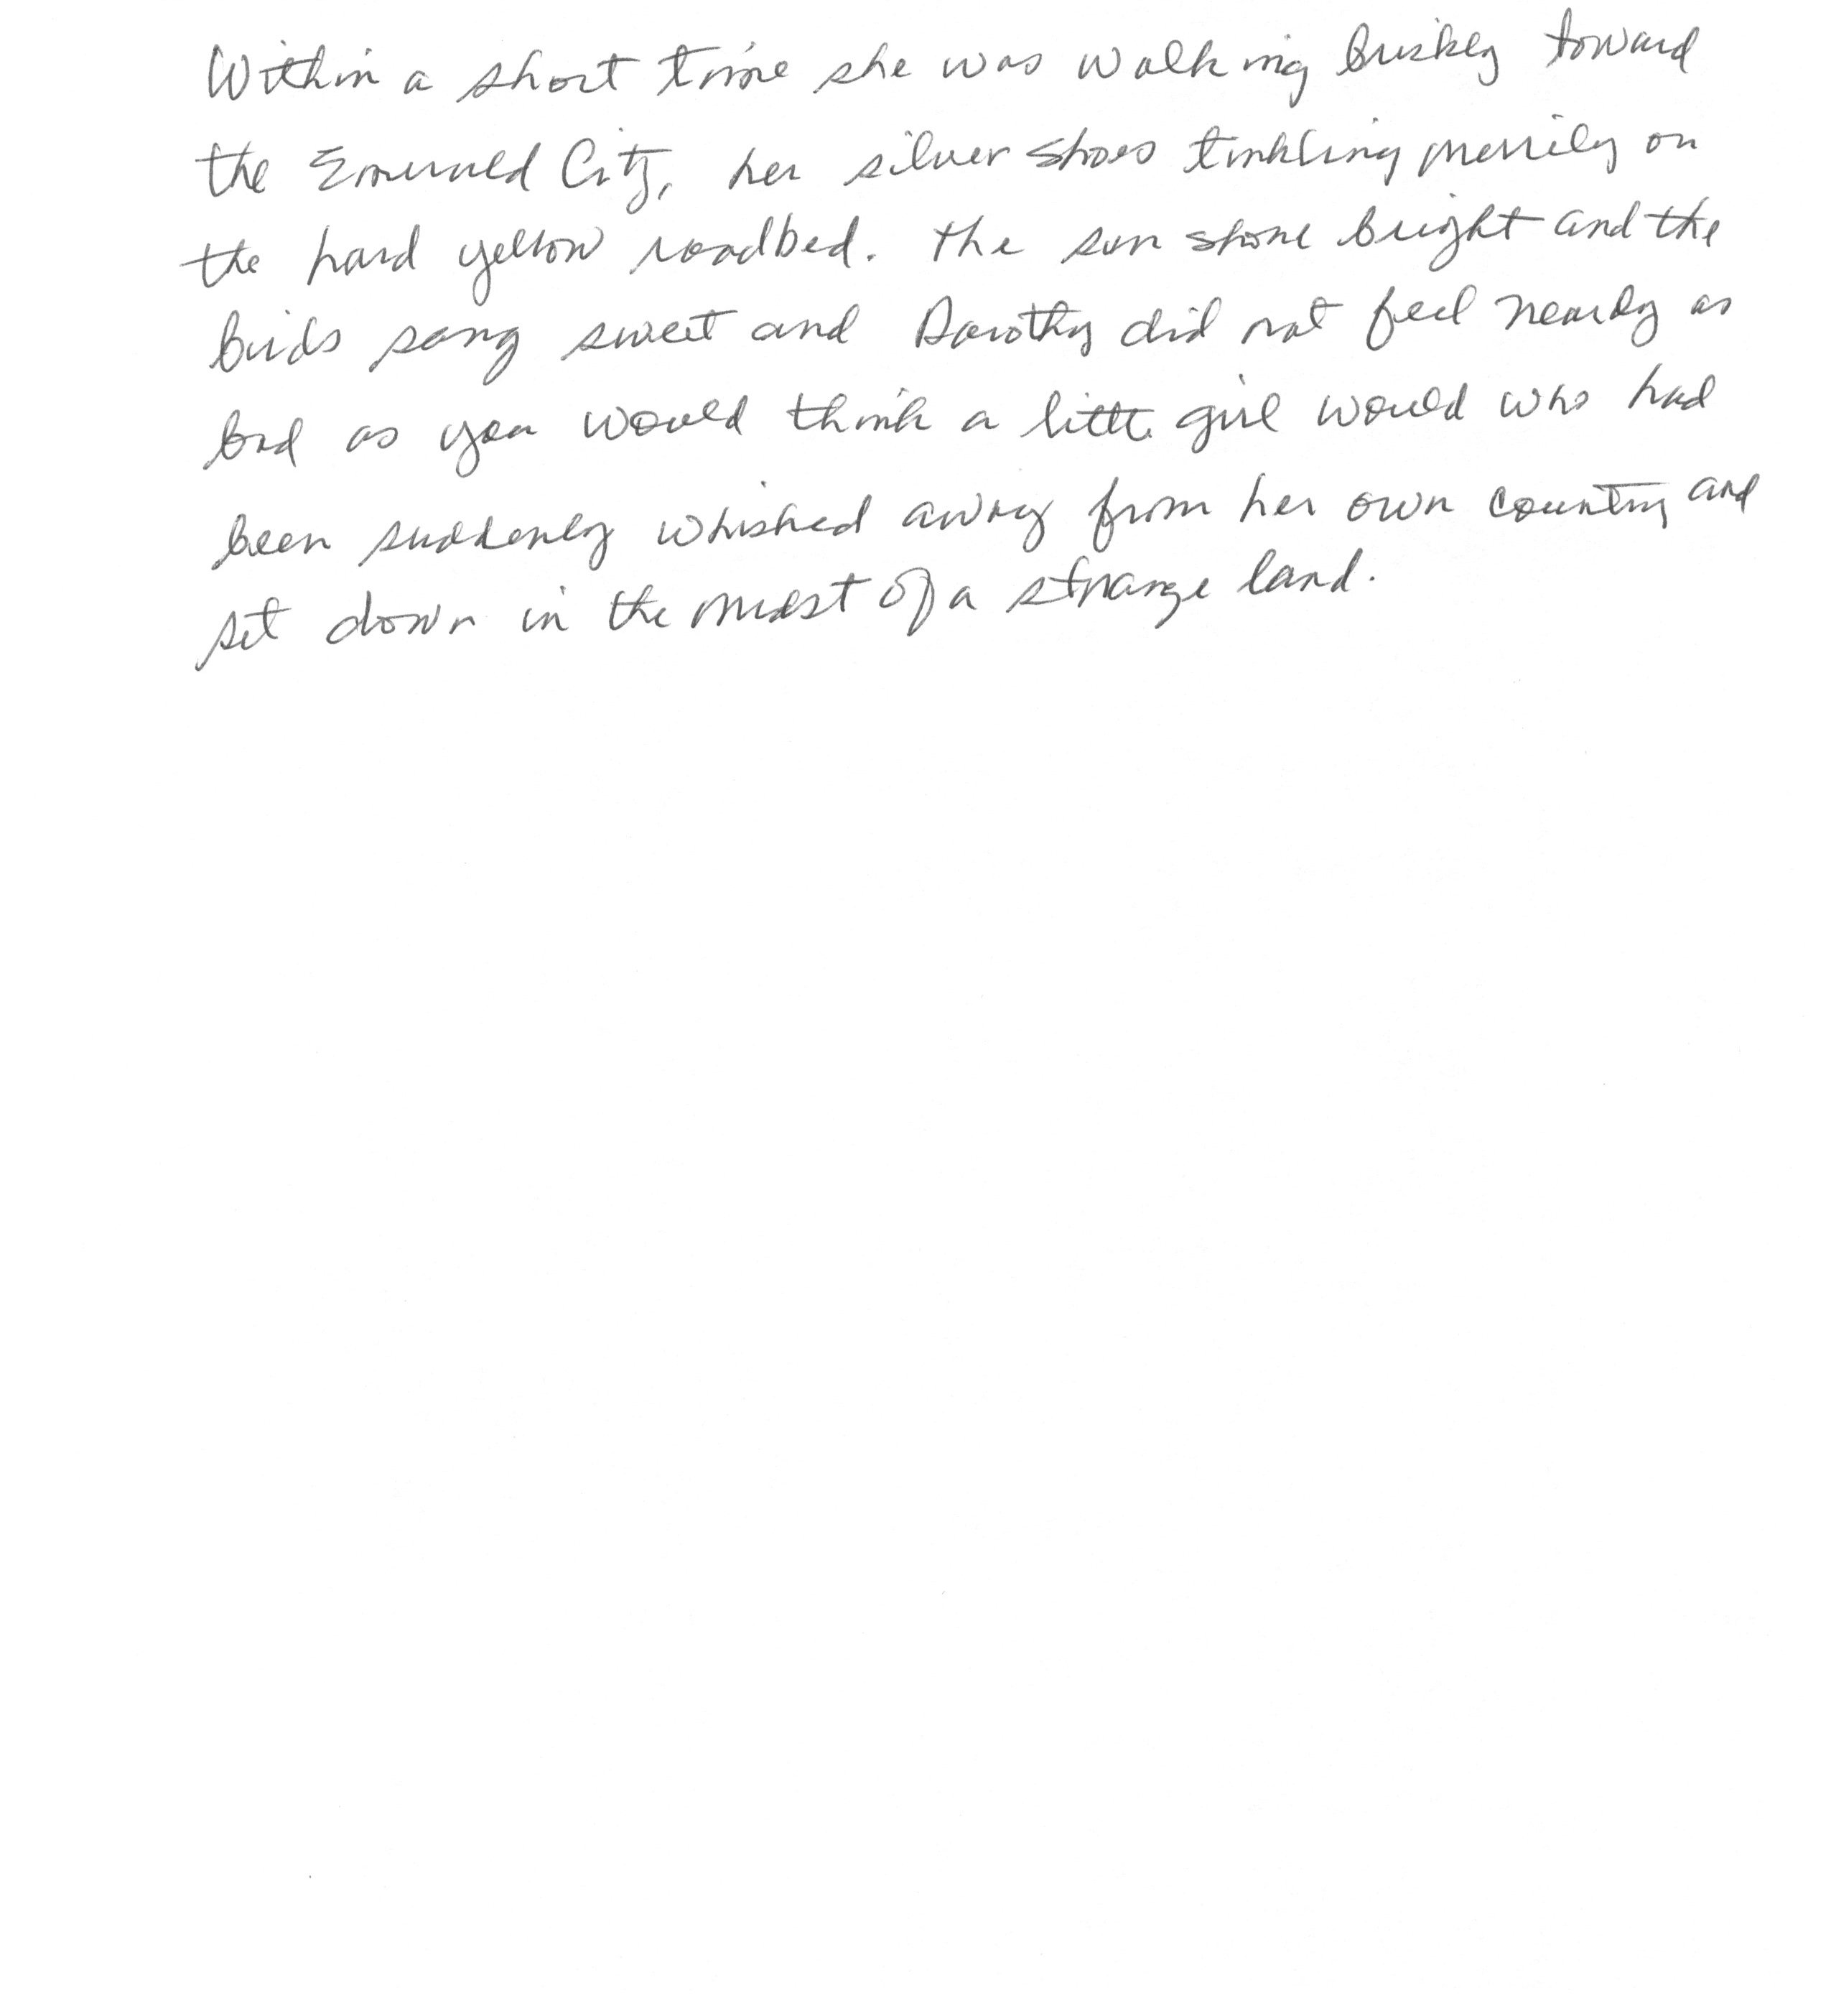 Within a short time she was walking briskly toward
the Emerald City, her silver shoes tinkling merrily on
the hard yellow roadbed. The sun shone bright and the
birds sang sweet and Dorothy did not feel nearly as
bad as you would think a little girl would who had
been suddenly whisked away from her own country and
set down in the midst of a strange land.